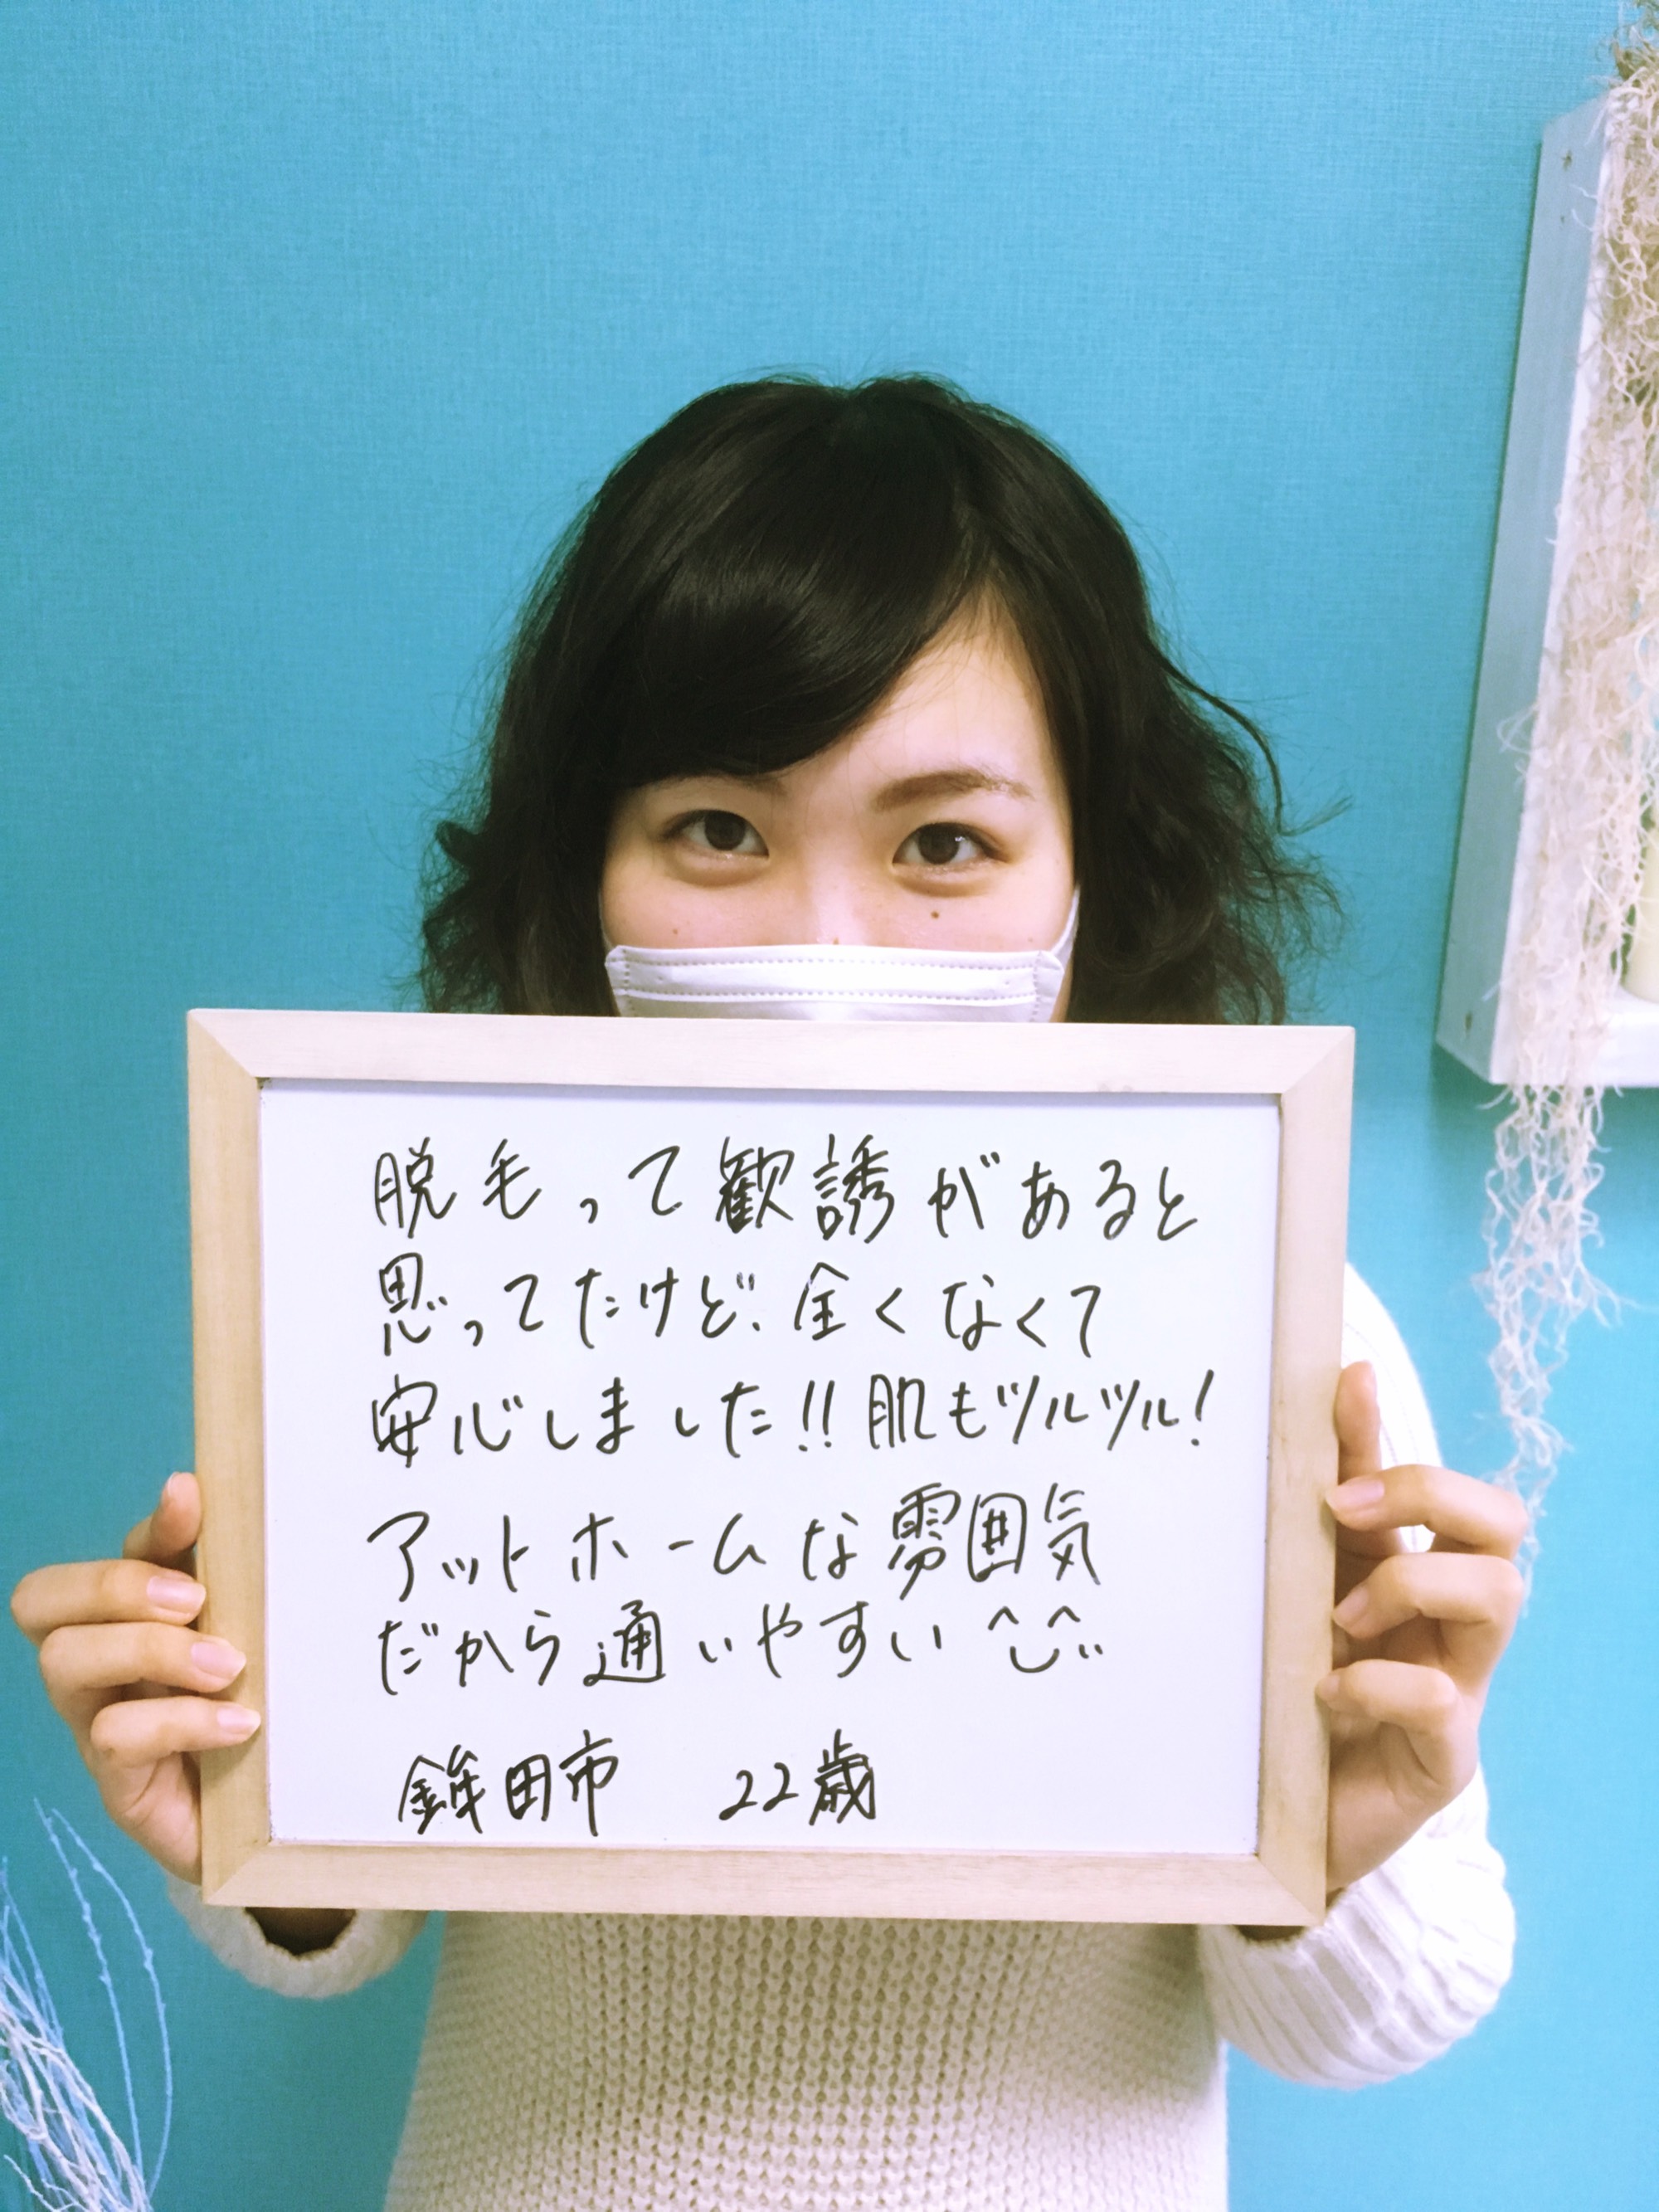 脱毛って歓誘があると
思ってたけど、全くなくて
安心しました!!肌もツルツル!
アットホームな雰囲気
だから通いやすい^^
鉾田市 22歳